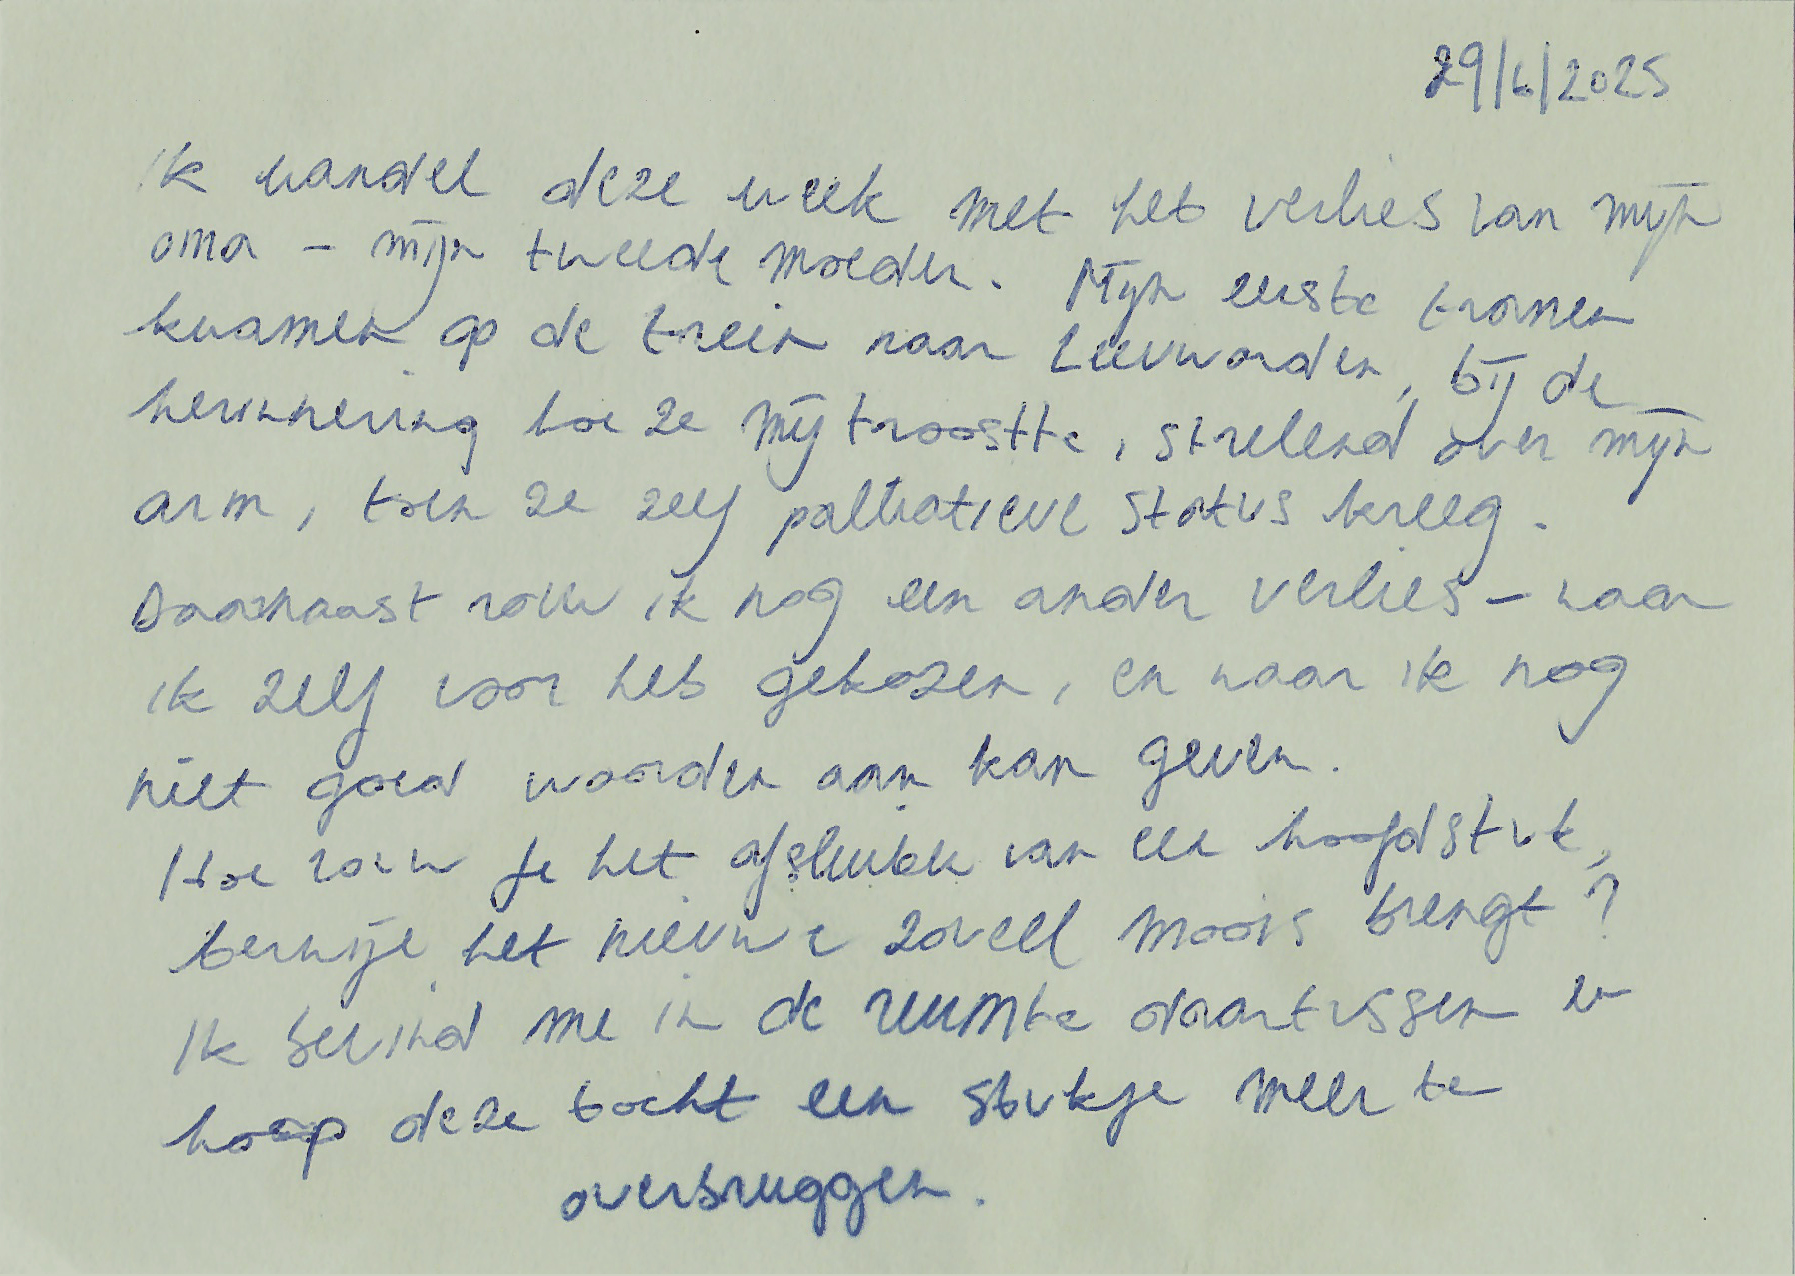 29/6/2025
Ik wandel deze week met het verlies van mijn
oma – mijn tweede moeder. Mijn eerste tranen
kwamen op de trein naar Leeuwarden, bij de
herinnering hoe ze mij troostte, strelend over mijn
arm, toen ze zelf palliatieve status kreeg.
Daarnaast rouw ik nog een ander verlies – waar
ik zelf voor heb gekozen, en waar ik nog
niet goed woorden aan kan geven.
Hoe rouw je het afsluiten van een hoofdstuk,
terwijl het nieuwe zoveel moois brengt?
Ik bevind me in de ruimte daartussen en
hoop deze tocht een stukje meer te
overbruggen.